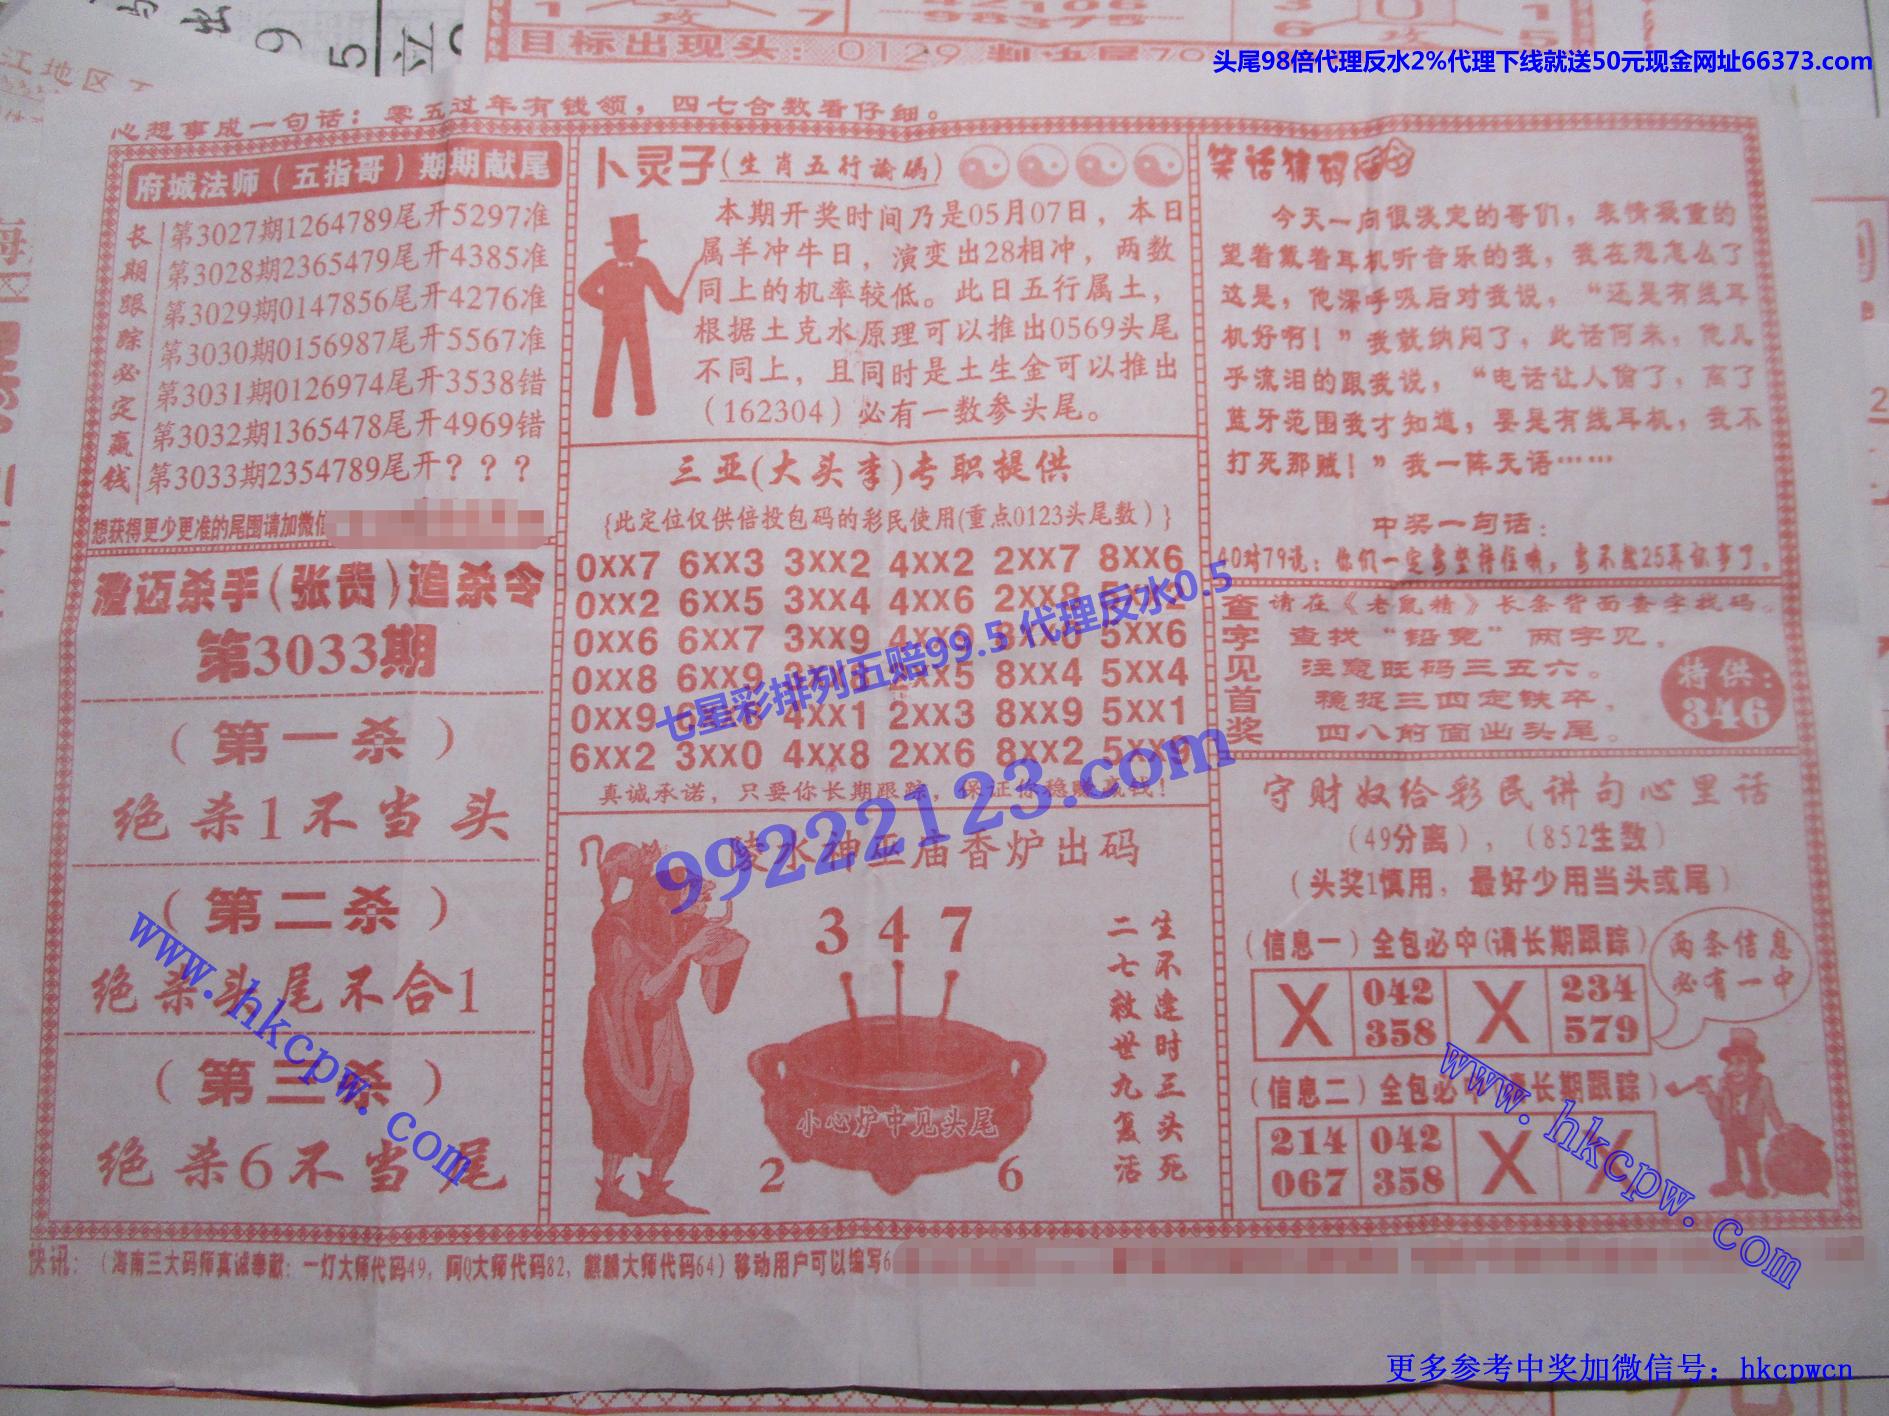 头尾98倍代理反水2%代理下线就送50元现金网址66373.com
江地区
9
5
立
1 攻 7
98378
目标出现头:0129 判决尾70
心想事成一句话:零五过年有钱领,四七合数看仔细。
府城法师(五指哥)期期献尾
长期跟踪必定赢钱
第3027期1264789尾开5297准
第3028期2365479尾开4385准
第3029期0147856尾开4276准
第3030期0156987尾开5567准
第3031期0126974尾开3538错
第3032期1365478尾开4969错
第3033期2354789尾开???
想获得更少更准的尾围请加微信
澄迈杀手(张贵)追杀令
第3033期
(第一杀)
绝杀1不当头
(第二杀)
绝杀头尾不合1
(第三杀)
绝杀6不当尾
卜灵子(生肖五行论码)
本期开奖时间乃是05月07日,本日
属羊冲牛日,演变出28相冲,两数
同上的机率较低。此日五行属土,
根据土克水原理可以推出0569头尾
不同上,且同时是土生金可以推出
(162304)必有一数参头尾。
三亚(大头李)专职提供
{此定位仅供倍投包码的彩民使用(重点0123头尾数)}
0xx7 6xx3 3xx2 4xx2 2xx7 8xx6
0xx2 6xx5 3xx4 4xx6 2xx8
0xx6 6xx7 3xx9 5xx6
0xx8 6xx9 8xx4 5xx4
0xx9 4xx1 2xx3 8xx9 5xx1
6xx2 3xx0 4xx8 2xx6 8xx2 5xx9
真诚承诺,只要你长期跟踪,保证你稳赚赢钱!
七星彩排列五赔99.5 代理反水0.5
99222123.com
陵水神巫庙香炉出码
3 4 7
小心炉中见头尾
2 6
生不逢时三头死
二七救世九复活
笑话猜码
今天一向很淡定的哥们,表情凝重的
望着戴着耳机听音乐的我,我在想怎么了
这是,他深呼吸后对我说,“还是有线耳
机好啊!”我就纳闷了,此话何来,他几
乎流泪的跟我说,“电话让人偷了,离了
蓝牙范围我才知道,要是有线耳机,我不
打死那贼!”我一阵无语……
中奖一句话:
40对79说:你们一定要坚持住哦,要不然25再说事了。
查字见首奖
请在《老鼠精》长条背面查字找码
查找“铅宽”两字见,
注意旺码三五六。
稳捉三四定铁卒,
四八前面出头尾。
特供:
346
守财奴给彩民讲句心里话
(49分离),(852生数)
(头奖1慎用,最好少用当头或尾)
(信息一)全包必中(请长期跟踪)
X 042 X 234
358 579
两条信息
必有一中
(信息二)全包必中(请长期跟踪)
214 042 X X
067 358
www.hkcpw.com
www.hkcpw.com
快讯:(海南三大码师真诚奉献:一灯大师代码49,阿Q大师代码82,麒麟大师代码64)移动用户可以编写6
更多参考中奖加微信号:hkcpwcn